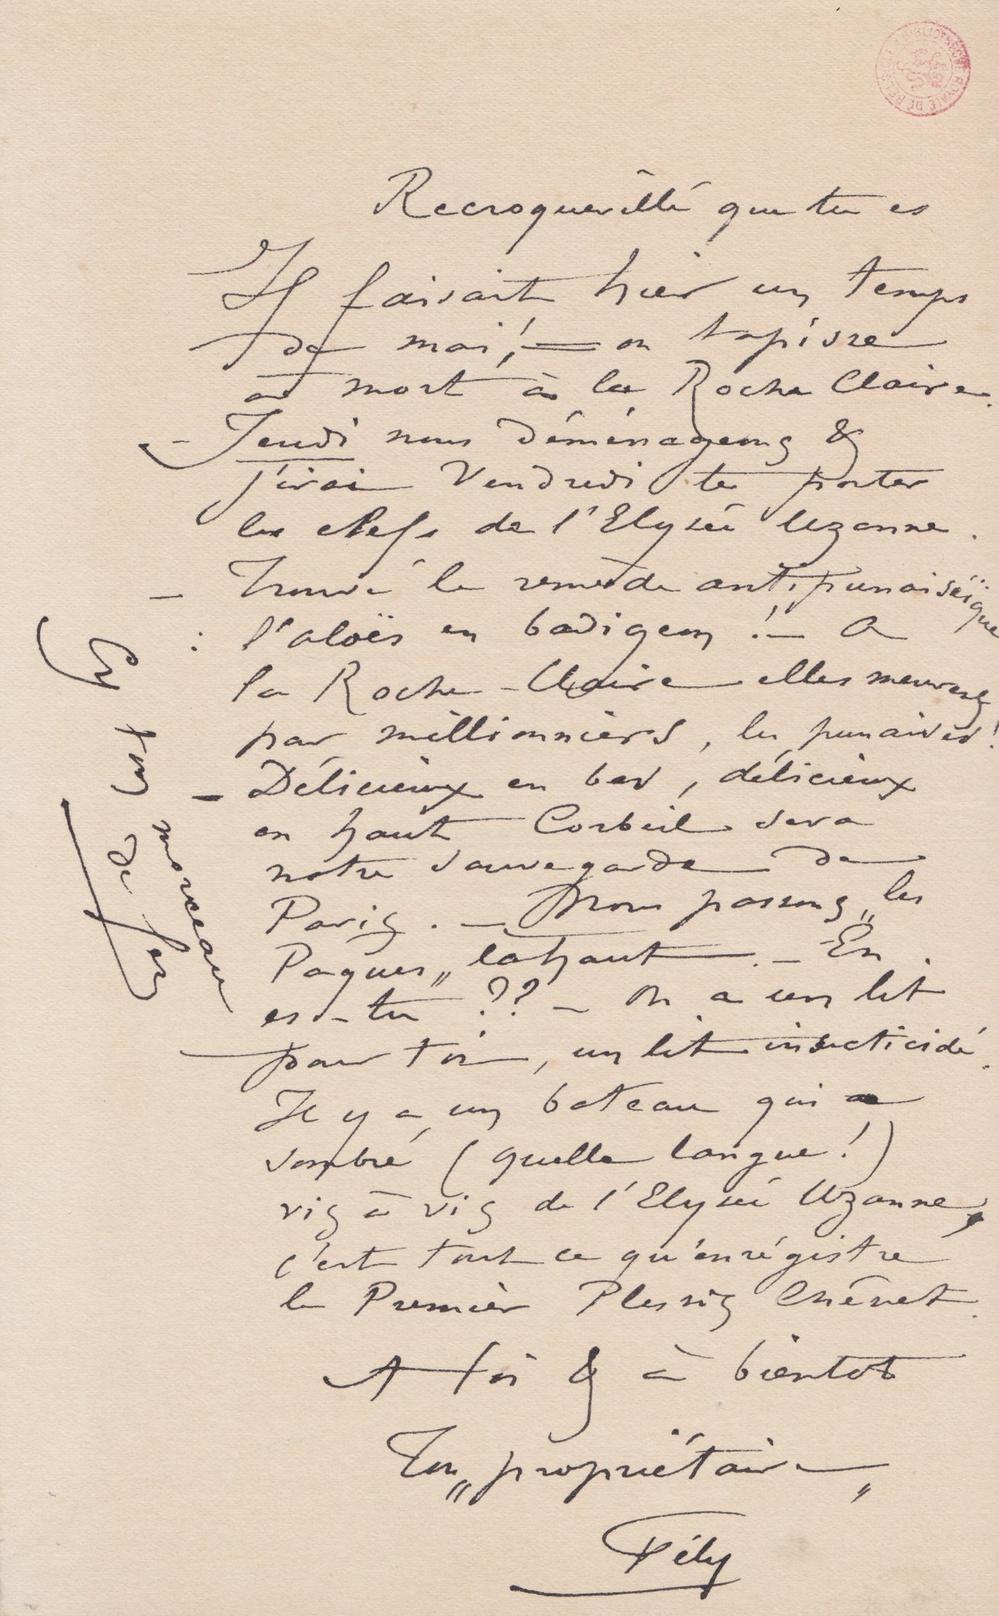 BIBLIOTHÈQUE ROYALE DE BELGIQUE
Recroquevillé que tu es
Il faisait hier un temps
de mai ! — on tapisse
à mort à la Roche Claire.
— Jeudi nous déménageons &
j'irai Vendredi te porter
les clefs de l'Elysée Uzanne.
— Trouvé le remède antipunaiséïque
: l'aloës en badigeon ! — A
la Roche-Claire elles meurent
par millionniers, les punaises !
— Délicieux en bas, délicieux
en haut Corbeil sera
notre sauvegarde de
Paris. — Nous passons „les
Paques„ lahaut. — En
es-tu ?? — On a un lit
pour toi, un lit insecticidé.
Il y a un bateau qui a
sombré (quelle langue !)
vis à vis de l'Elysée Uzanne,
c'est tout ce qu'enrégistre
le Premier Plessis Chênet.
A toi & à bientot
Ton „propriétaire„
Fély
Et ton morceau
de fer